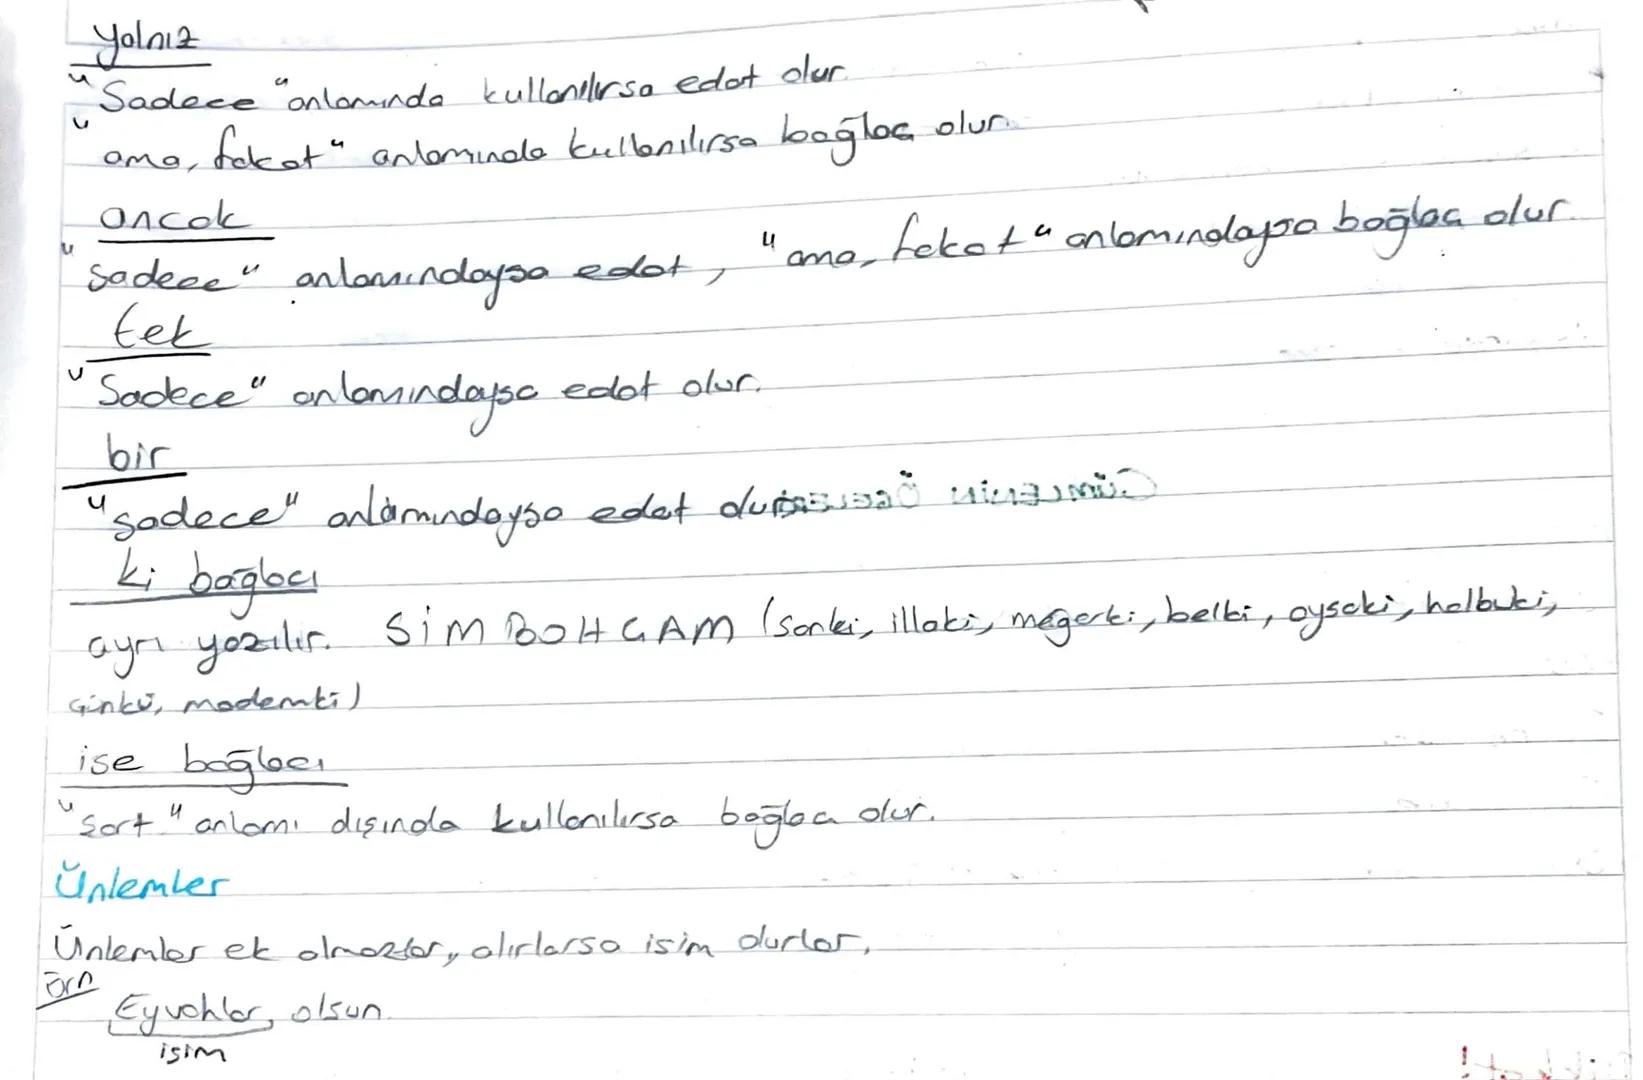 yalnız
"Sadece" anlamında kullanılırsa edat olur.
"ama, fakat" anlamında kullanılırsa bağlaç olur.
ancak
"sadece" anlamındaysa edat, "ama, fakat" anlamındaysa bağlaç olur.
tek
"Sadece" anlamındaysa edat olur.
bir
"sadece" anlamındaysa edat olur
ki bağlacı
ayrı yazılır. SİM BOHÇAM (sanki, illaki, meğerki, belki, oysaki, halbuki,
çünkü, mademki)
ise bağlacı
"şart" anlamı dışında kullanılırsa bağlaç olur.
Ünlemler
Ünlemler ek almazlar, alırlarsa isim olurlar.
örn
Eyvahlar olsun.
isim